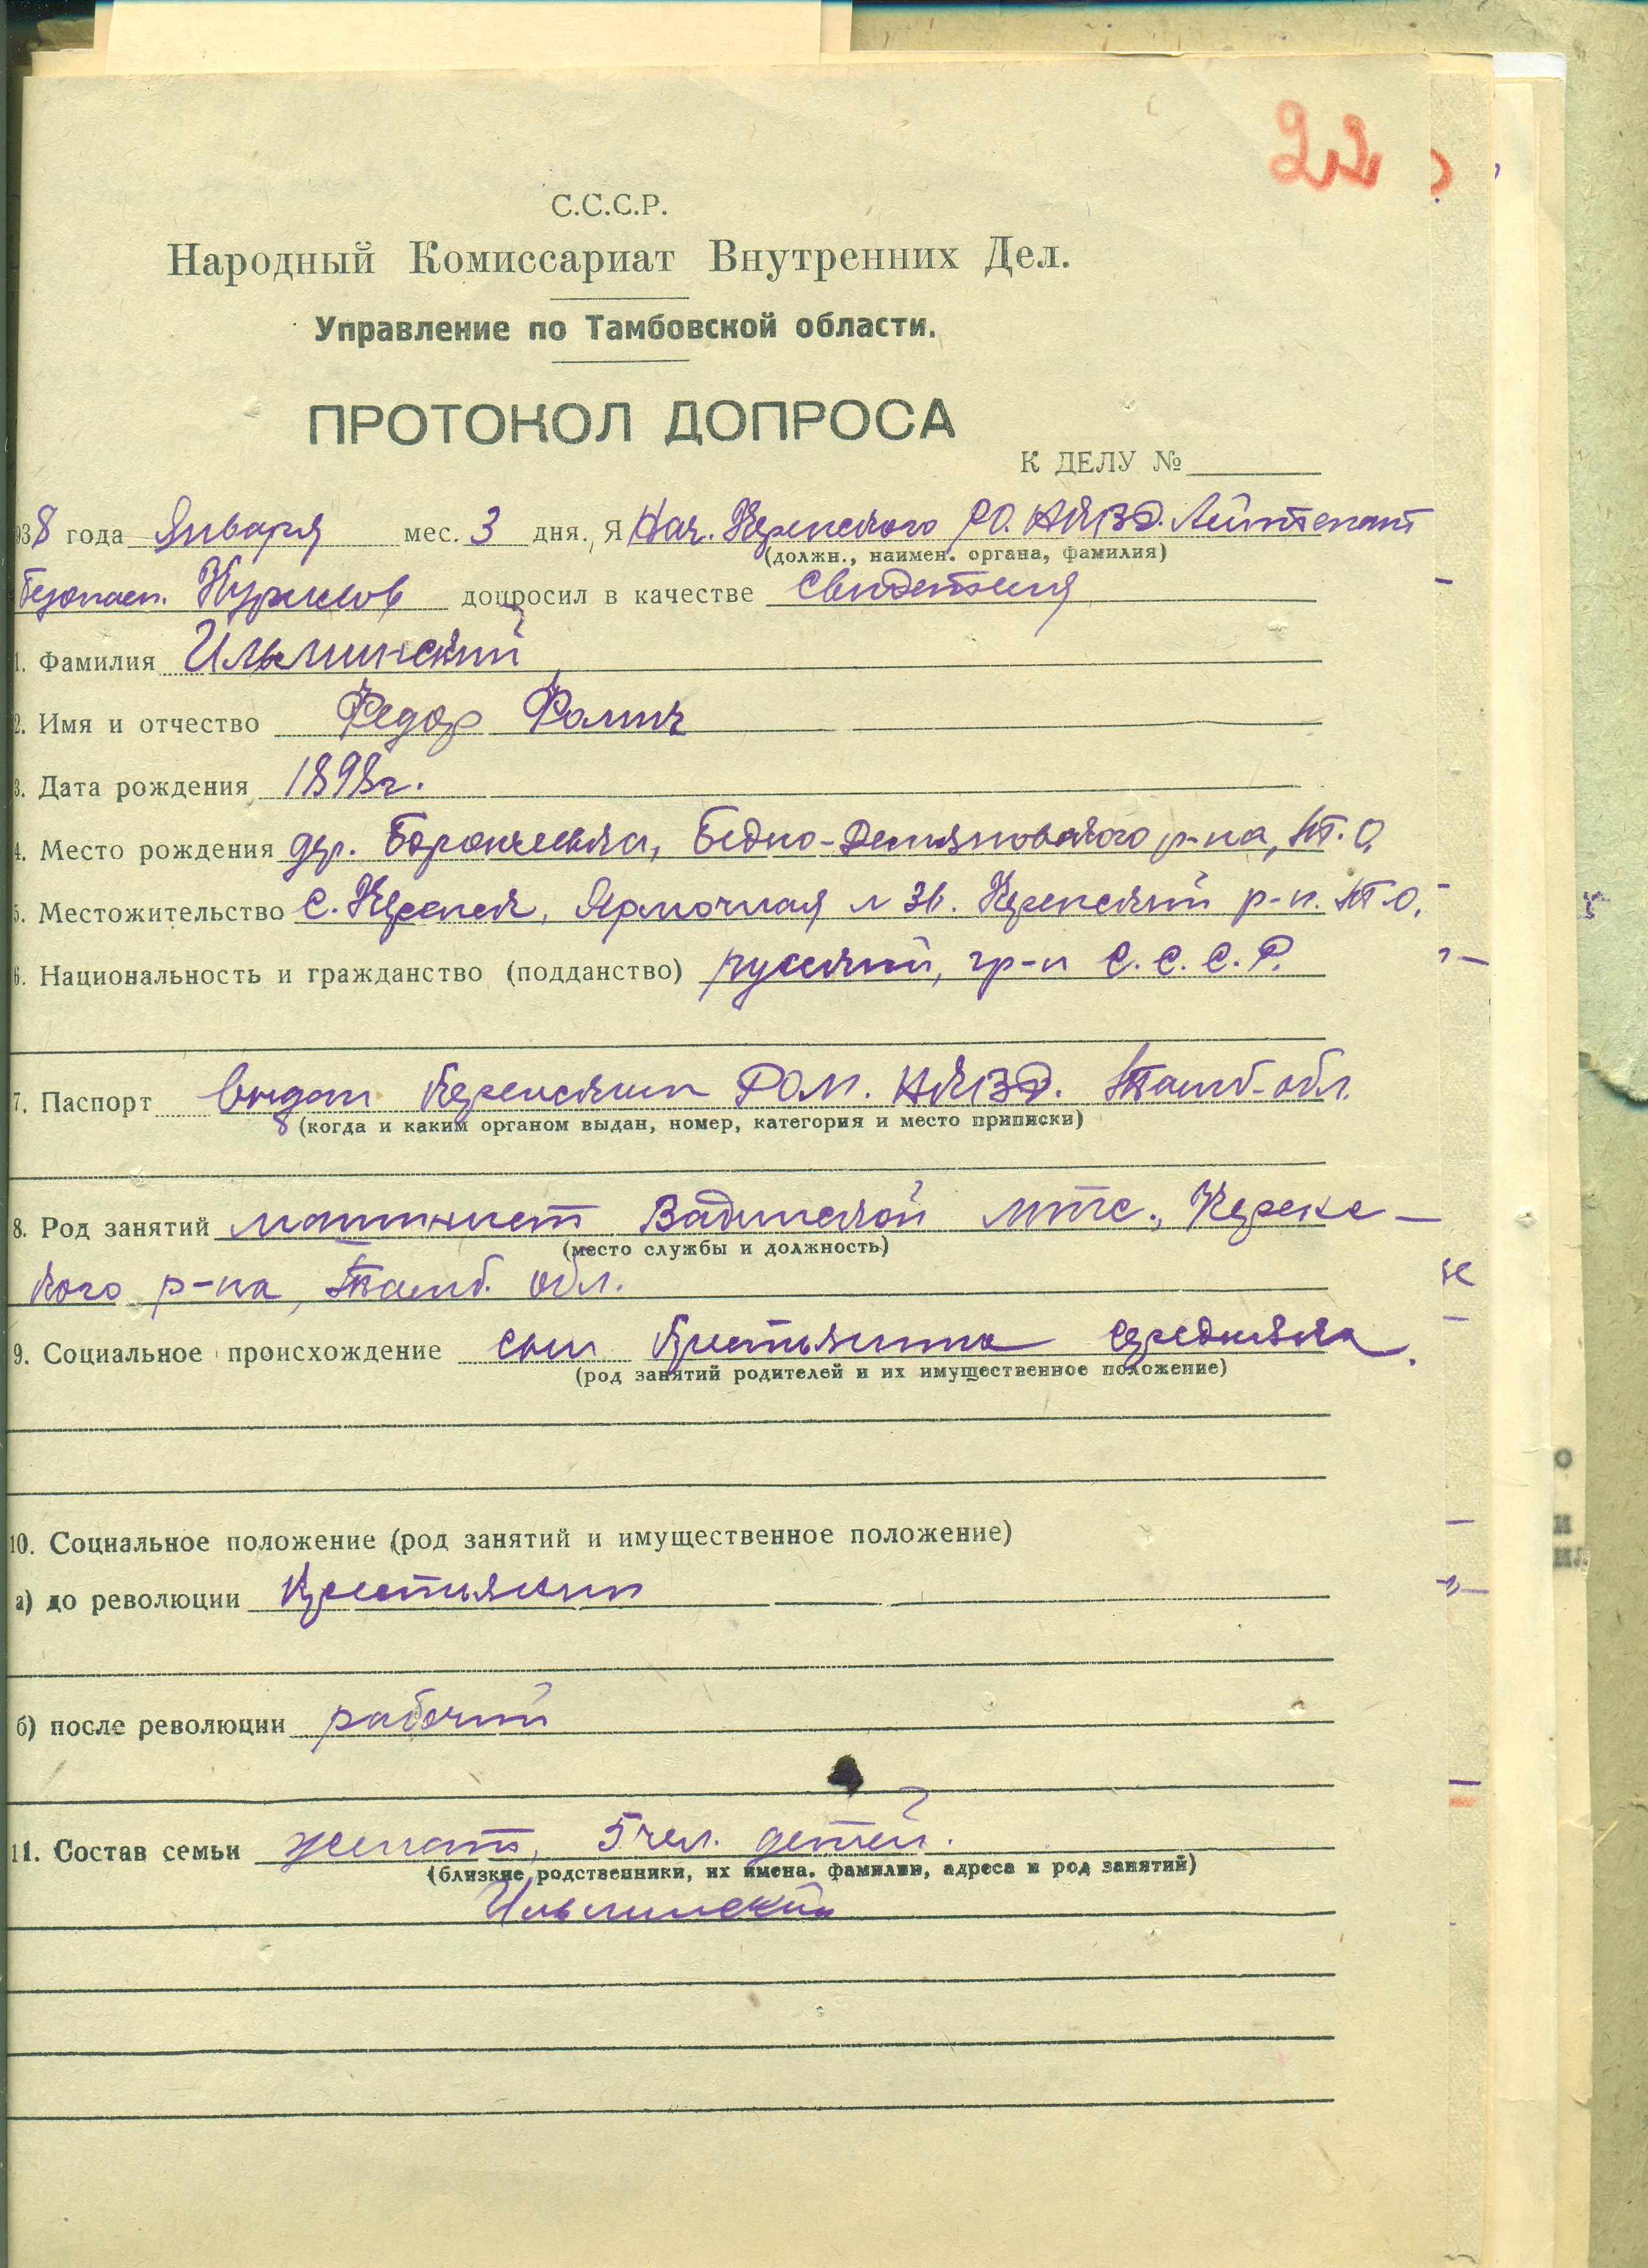 22
С.С.С.Р.
Народный Комиссариат Внутренних Дел.
Управление по Тамбовской области.
ПРОТОКОЛ ДОПРОСА
К ДЕЛУ №
938 года Января мес. 3 дня. Я Нач. Керенского РО. НКВД. Лейтенант
(должн., наимен. органа, фамилия)
Безопасн. допросил в качестве свидетеля
1. Фамилия Ильминский
2. Имя и отчество Федор Фомич
3. Дата рождения 1898г.
4. Место рождения дер. Бедно-Демьяновского р-на, Т.О.
5. Местожительство с. Керенск, Ярмочная № 36. Керенский р-н. Т.О.
6. Национальность и гражданство (подданство) русский, гр-н С.С.С.Р.
7. Паспорт выдан Керенским РОМ. НКВД. Тамб-обл.
(когда и каким органом выдан, номер, категория и место приписки)
8. Род занятий машинист Вадинской мтс., Керенс-
(место службы и должность)
кого р-на, Тамб. обл.
9. Социальное происхождение сын крестьянина середняка.
(род занятий родителей и их имущественное положение)
10. Социальное положение (род занятий и имущественное положение)
а) до революции Крестьянин
б) после революции рабочий
11. Состав семьи женат, 5 чел. детей.
(близкие родственники, их имена, фамилии, адреса и род занятий)
Ильминский